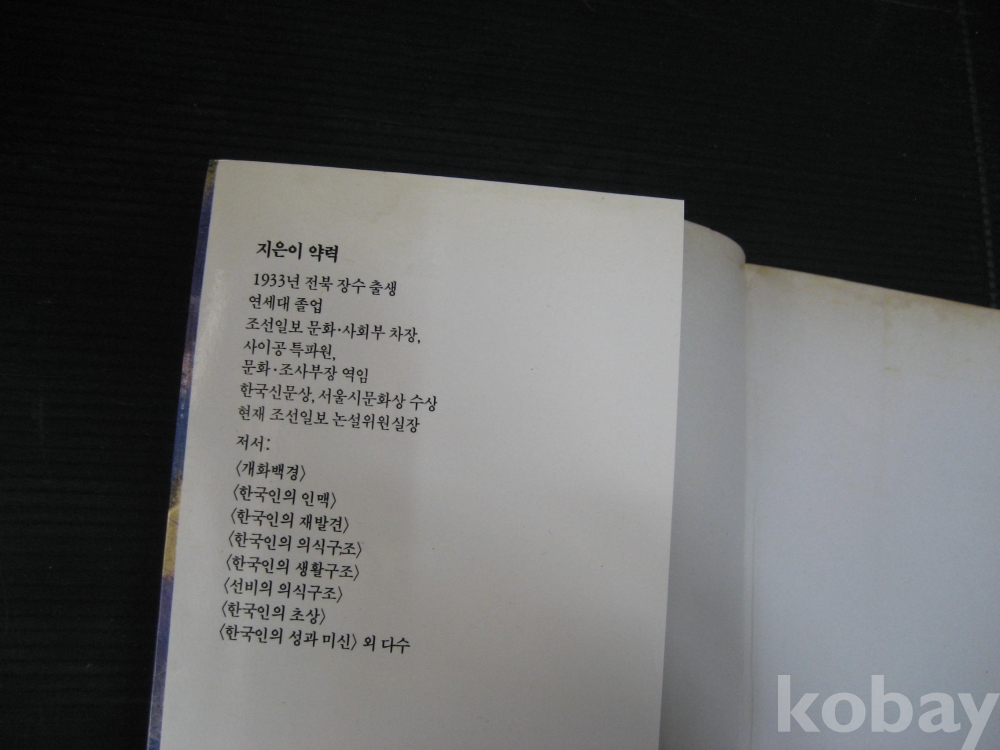 지은이 약력
1933년 전북 장수 출생
연세대 졸업
조선일보 문화·사회부 차장,
사이공 특파원,
문화·조사부장 역임
한국신문상, 서울시문화상 수상
현재 조선일보 논설위원실장
저서:
〈개화백경〉
〈한국인의 인맥〉
〈한국인의 재발견〉
〈한국인의 의식구조〉
〈한국인의 생활구조〉
〈선비의 의식구조〉
〈한국인의 초상〉
〈한국인의 성과 미신〉 외 다수
kobay